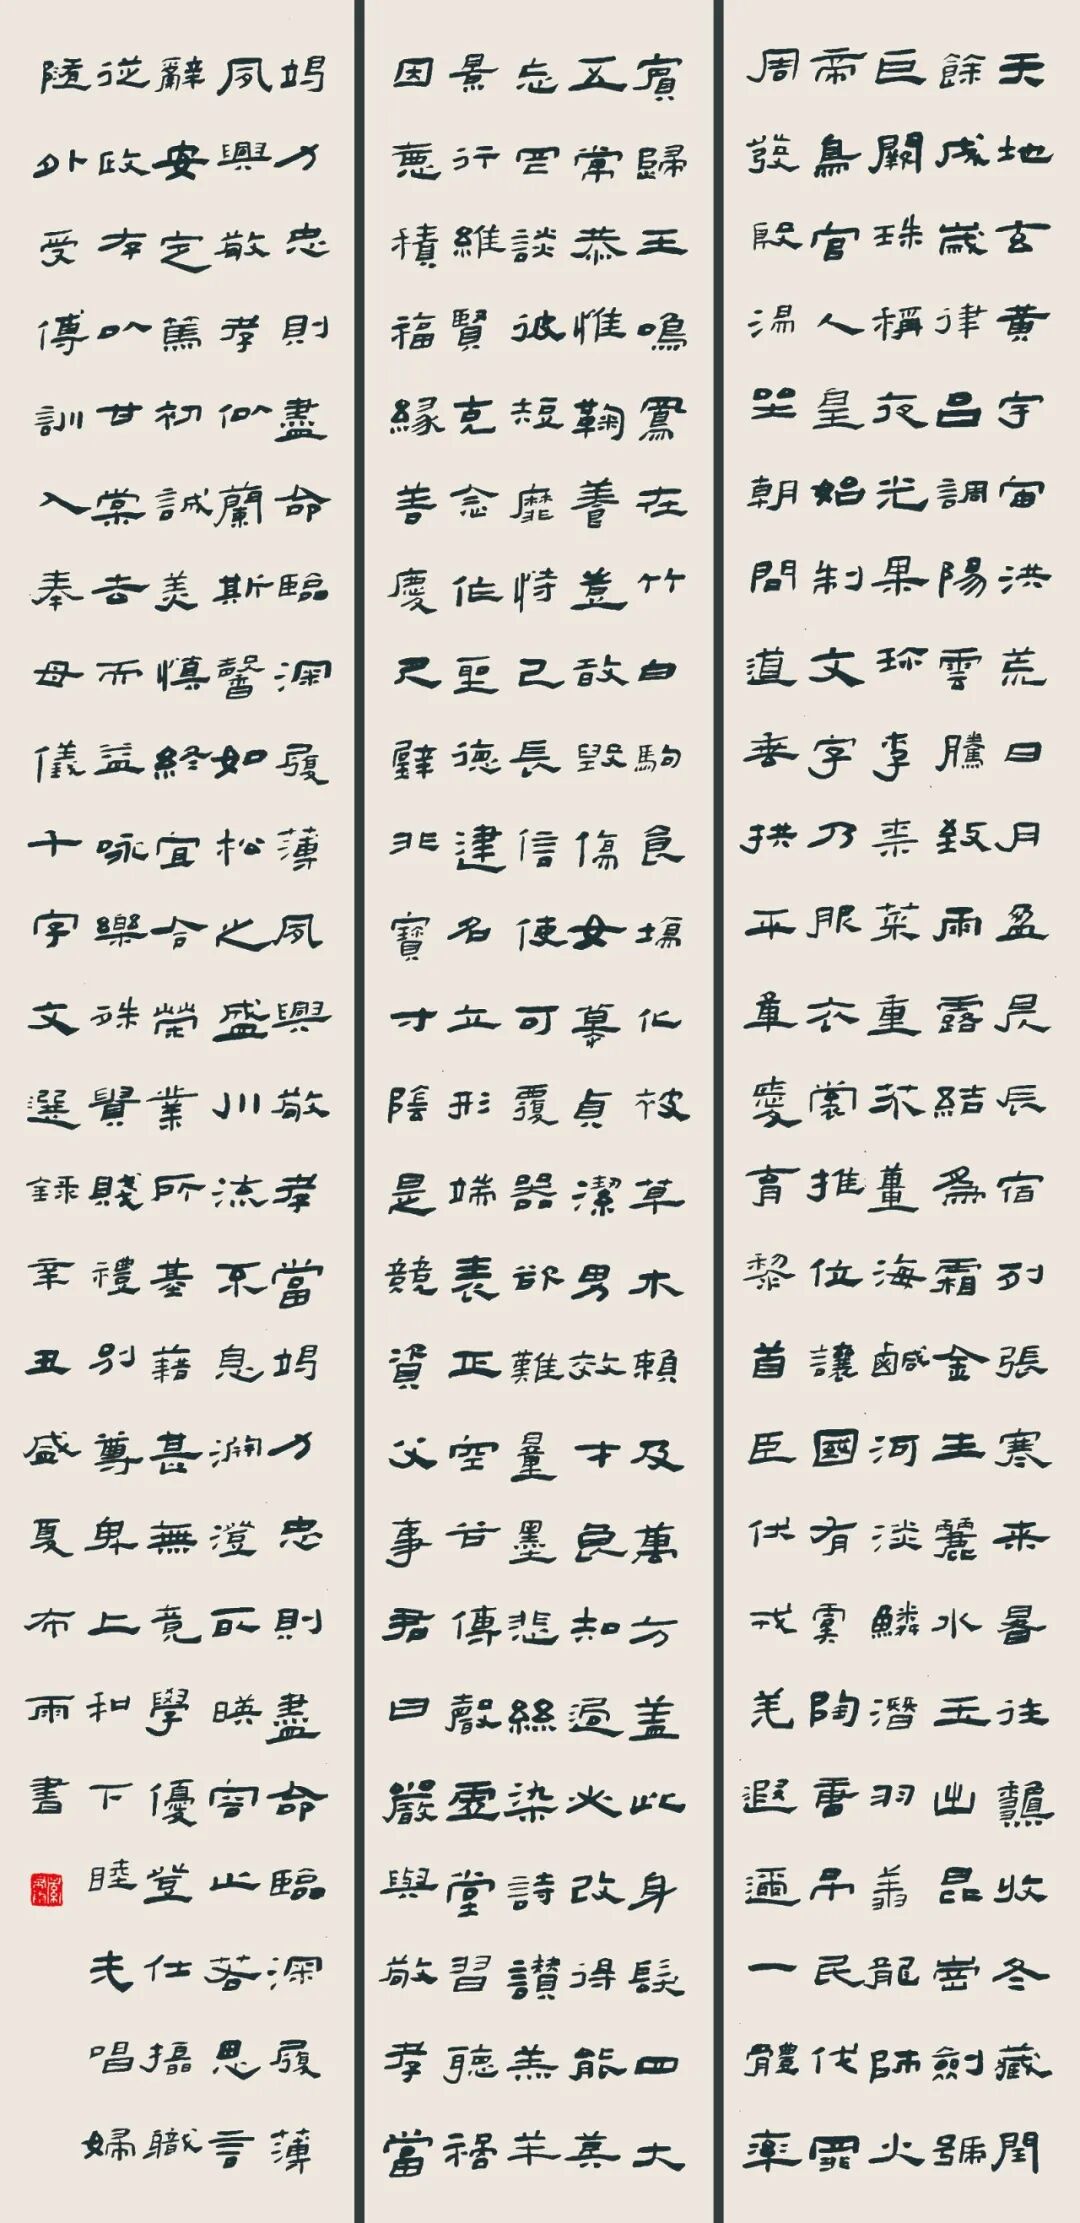 天地玄黄宇宙洪荒日月盈昃辰宿列張寒来暑往龝收冬藏閏
餘成歲律吕調陽雲騰致雨露結為霜金生麗水玉出崑崗劍號
巨闕珠稱夜光果珎李柰菜重芥薑海鹹河淡鱗潛羽翔龍師火
帝鳥官人皇始制文字乃服衣裳推位讓國有虞陶唐弔民伐罪
周發殷湯坐朝問道垂拱平章愛育黎首臣伏戎羌遐邇一體率
賓歸王鳴鳳在竹白駒食場化被草木賴及萬方蓋此身髮四大
五常恭惟鞠養豈敢毀傷女慕貞潔男效才良知過必改得能莫
忘罔談彼短靡恃己長信使可覆器欲難量墨悲絲染詩讃羔羊
景行維賢克念作聖德建名立形端表正空谷傳聲虚堂習聽禍
因惡積福緣善慶尺璧非寶寸陰是競資父事君曰嚴與敬孝當
竭力忠則盡命臨深履薄夙興敬孝當竭力忠則盡命臨深履薄
夙興敬孝似蘭斯馨如松之盛川流不息淵澄取暎容止若思言
辭安定篤初誠美慎終宜令榮業所基藉甚無竟學優登仕攝職
從政存以甘棠去而益咏樂殊貴賤禮別尊卑上和下睦夫唱婦
隨外受傅訓入奉母儀千字文選録辛丑盛夏布雨書